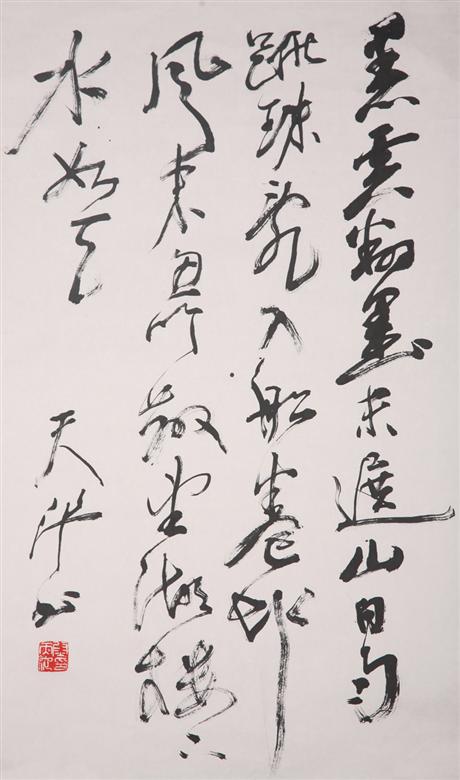 黑雲翻墨未遮山白雨
跳珠亂入船卷地
風来忽吹散望湖樓下
水如天
天 书